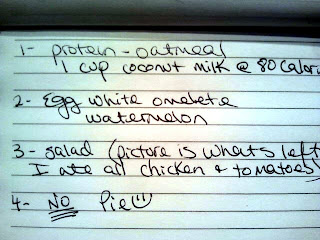 1- protein-oatmeal
1 cup coconut milk @ 80 calori
2- Egg white omelete
watermelon
3- salad (picture is whats left
I ate all chicken + tomatoes)
4- NO Pie